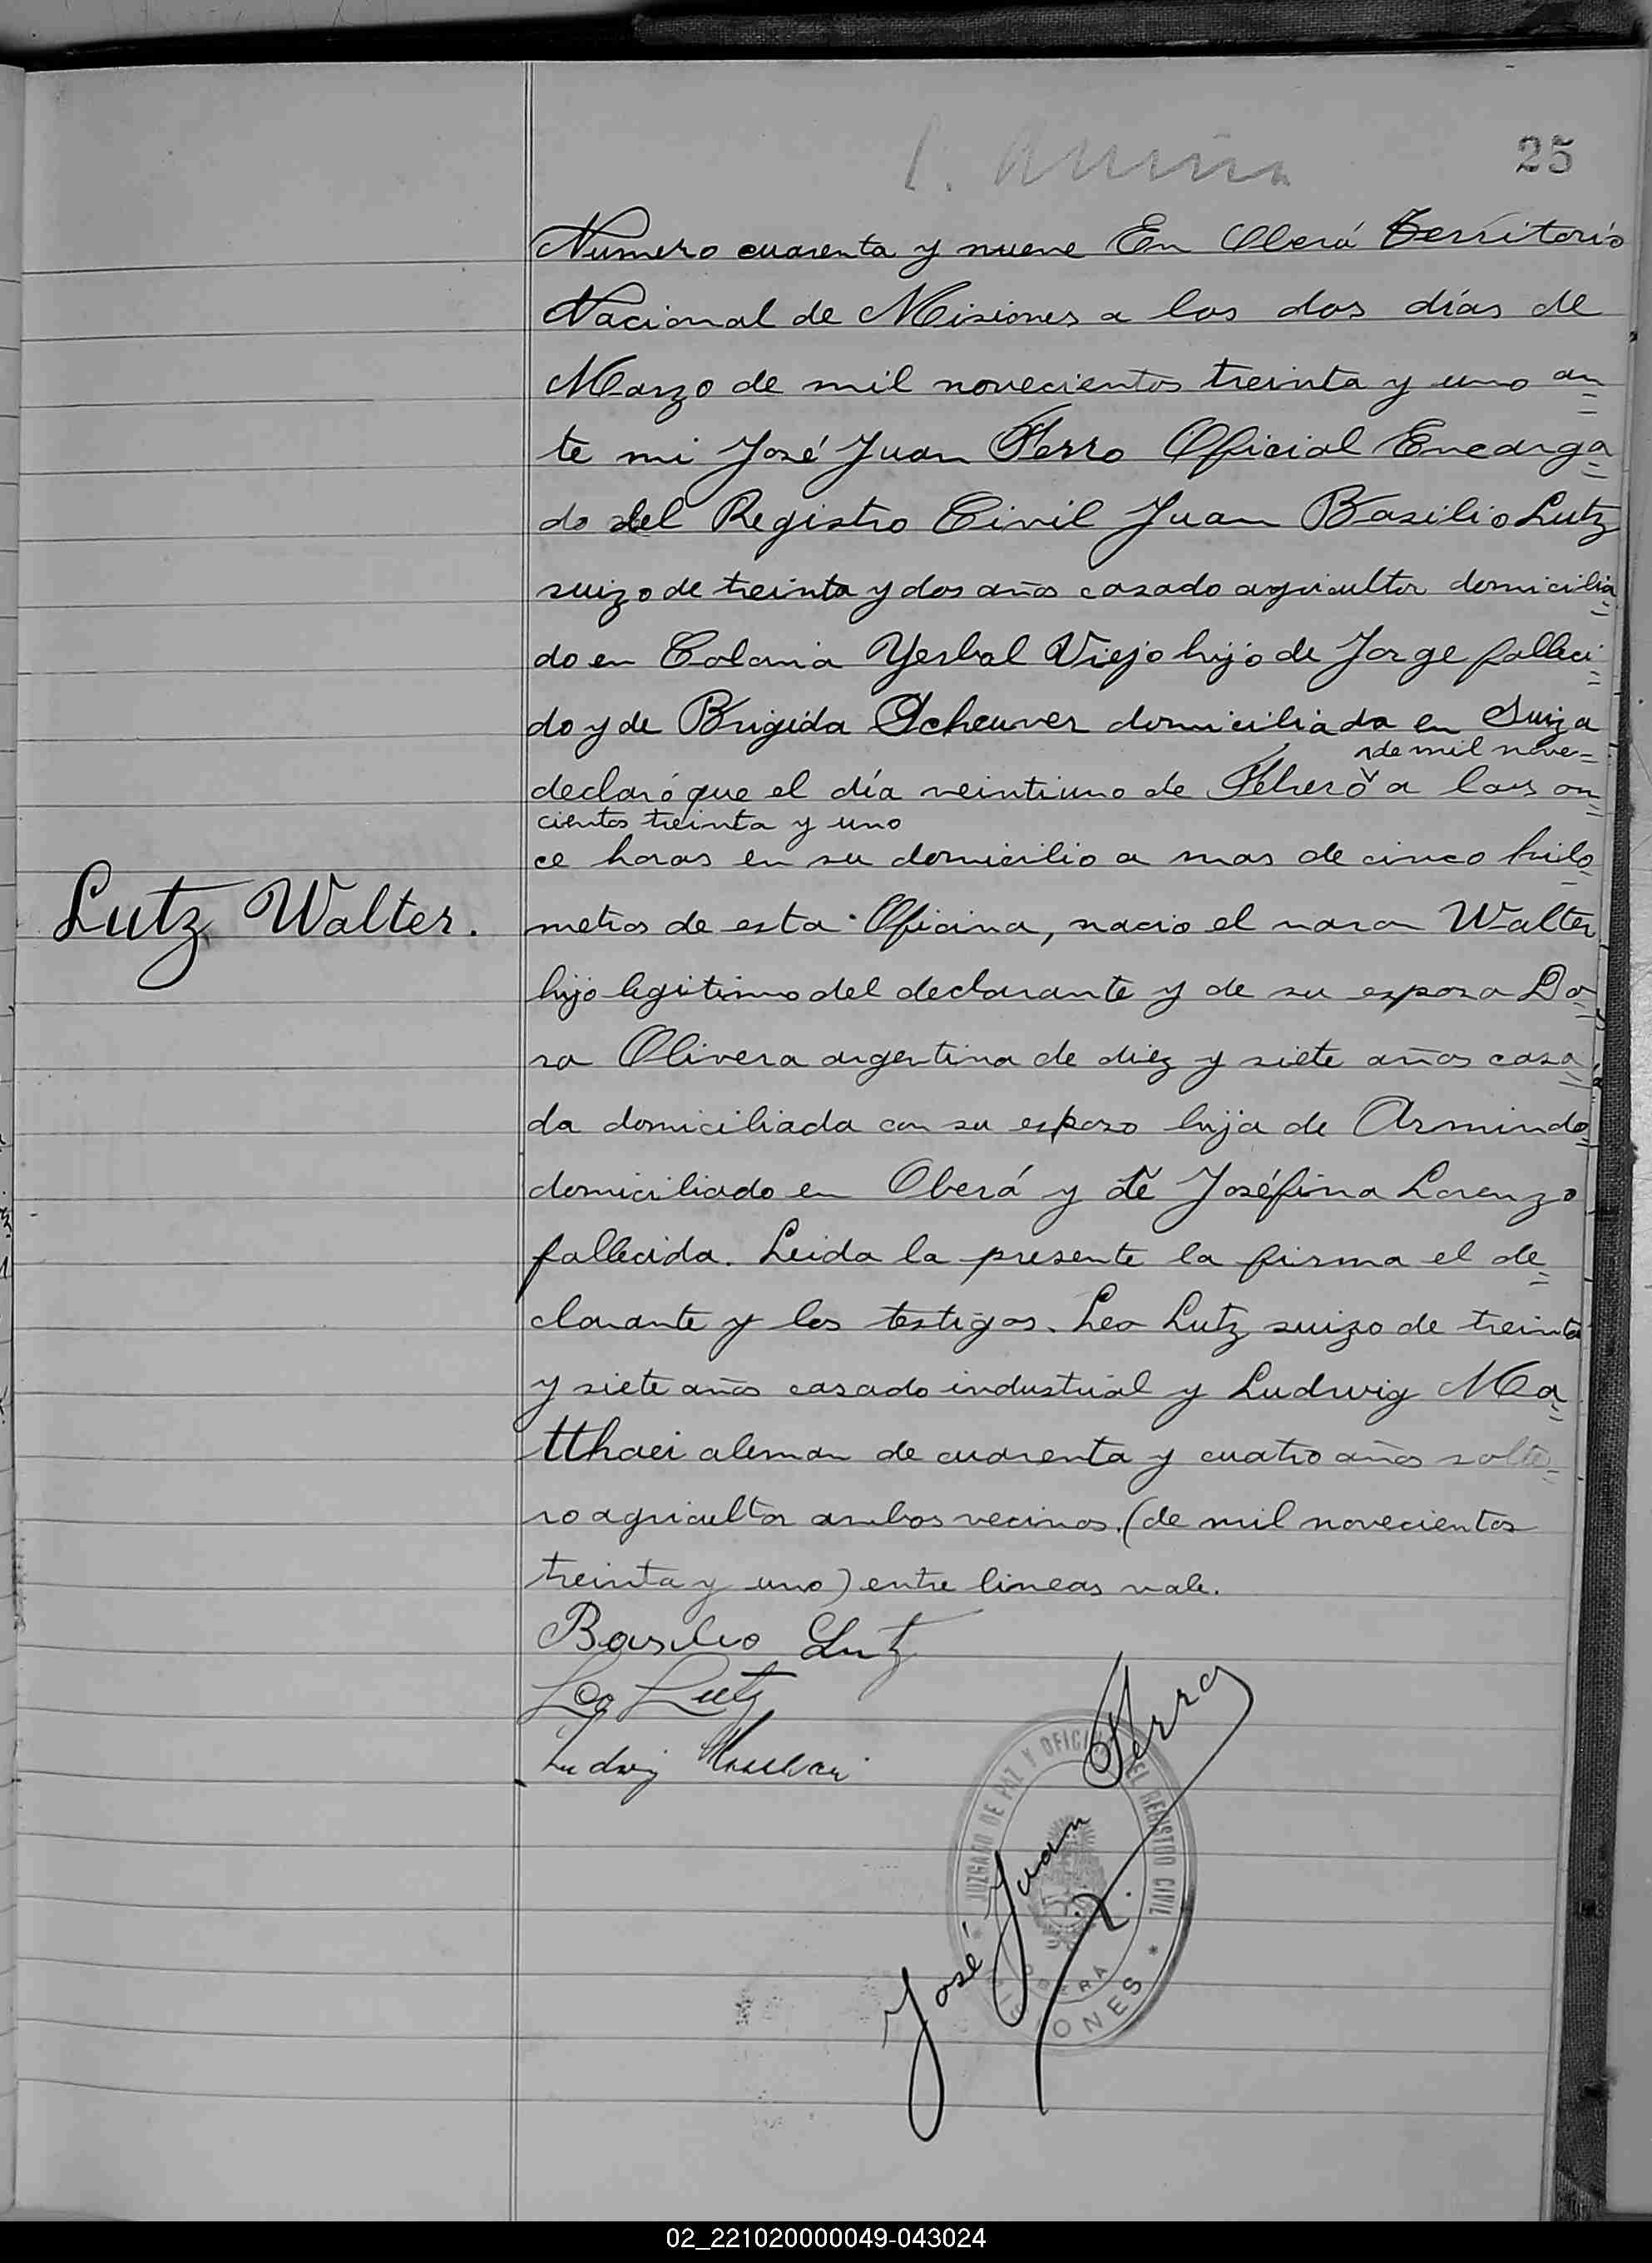 25
Numero cuarenta y nueve En Oberá Territorio
Nacional de Misiones a los dos días de
Marzo de mil novecientos treinta y uno an=
te mi José Juan Ferro Oficial Encarga=
do del Registro Civil Juan Basilio Lutz
suizo de treinta y dos años casado agricultor domicilia=
do en Colonia Yerbal Viejo hijo de Jorge falleci=
do y de Brigida Scheuner domiciliada en Suiza
de mil nove=
declaró que el día veintiuno de Febrero a las on=
cientos treinta y uno
ce horas en su domicilio a mas de cinco kilo=
Lutz Walter.
metros de esta Oficina, nacio el varon Walter
hijo legitimo del declarante y de su esposa Do=
ra Olivera argentina de diez y siete años casa=
da domiciliada con su esposo hija de Armindo
domiciliado en Oberá y de Joséfina Lorenzo
fallecida. Leida la presente la firma el de=
clarante y los testigos. Leo Lutz suizo de treinta
y siete años casado industrial y Ludwig Ma=
tthaei aleman de cuarenta y cuatro años solte=
ro agricultor ambos vecinos. (de mil novecientos
treinta y uno) entre lineas vale.
Basilio Lutz
Leo Lutz
Ludwig Matthaei
José Juan Ferro
JUZGADO DE PAZ Y OFICINA DEL REGISTRO CIVIL
OBERA
02_221020000049-043024